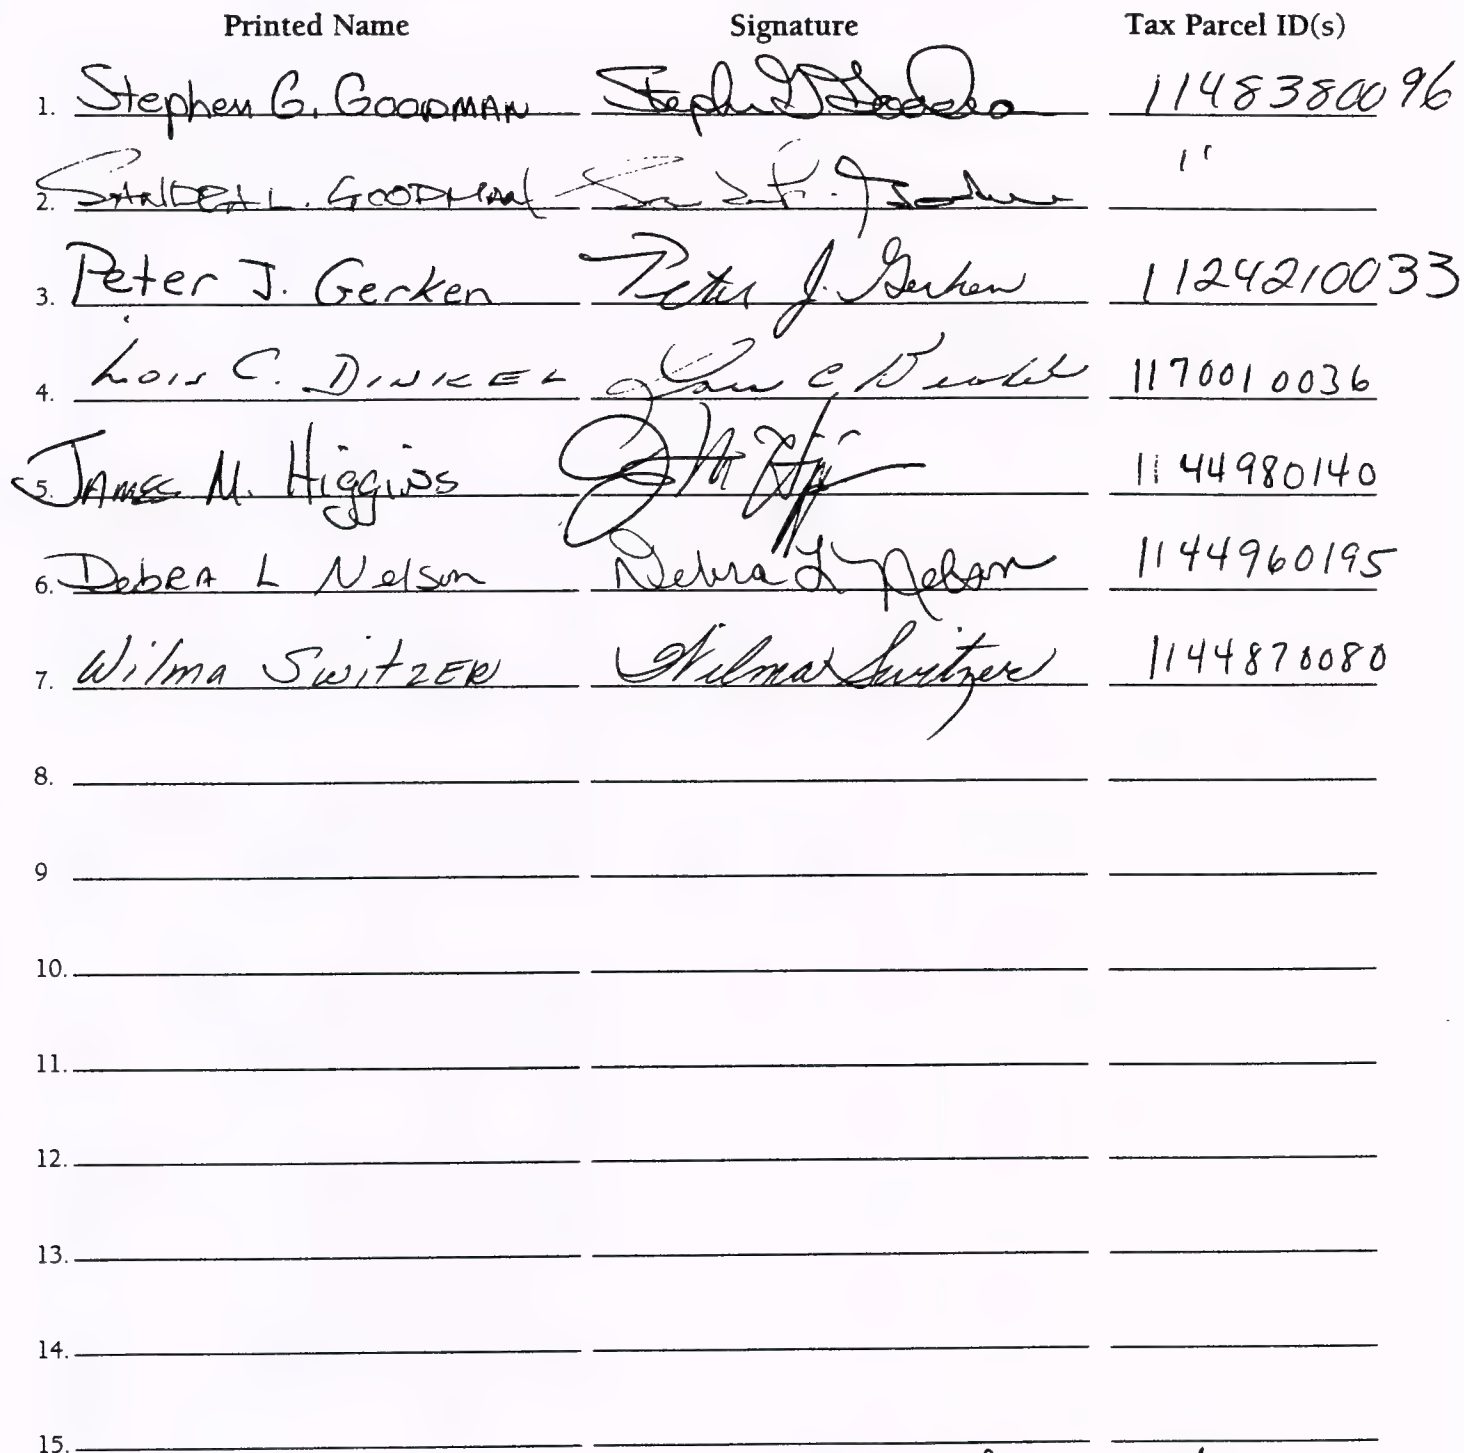 Printed Name Signature Tax Parcel ID(s)
1. Stephen G. GOODMAN Stephen G Goodman 11483800 96
2. SANDRA L. GOODMAN "
3. Peter J. Gerken Peter J. Gerken 1124210033
4. Lois C. DINKEL Lois C Dinkel 1170010036
5. JAMES M. Higgins 1144980140
6. DebRA L Nelson Debra L Nelson 1144960195
7. Wilma SwitzER Wilma Switzer 1144870080
8.
9
10.
11.
12.
13.
14.
15.